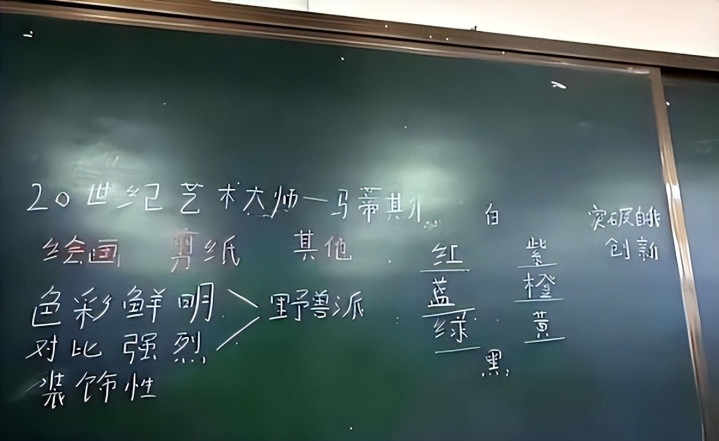 20世纪艺术大师—马蒂斯
绘画 剪纸 其他
色彩鲜明 > 野兽派
对比强烈
装饰性
白
红 紫
蓝 橙
绿 黄
黑
突破自我
创新